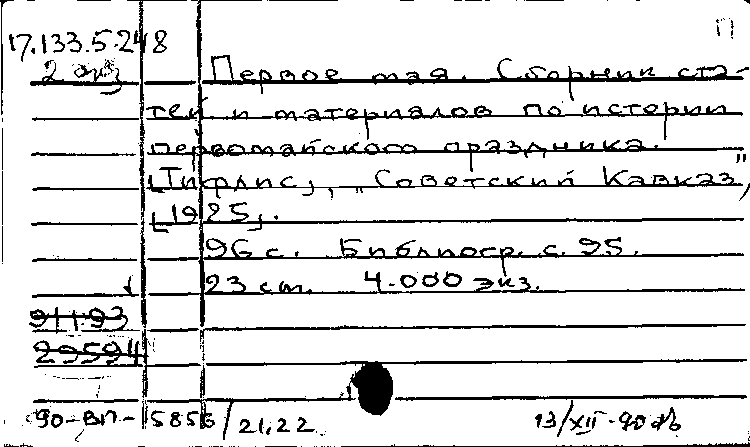 П
17.133.5.248
2 экз
Первое мая. Сборник ста-
тей и материалов по истории
первомайского праздника.
[Тифлис], „Советский Кавказ",
[1925].
96 с. Библиогр. с. 95.
23 см. 4.000 экз.
91193
29594
90-ВП-15856/21,22
13/XII-90